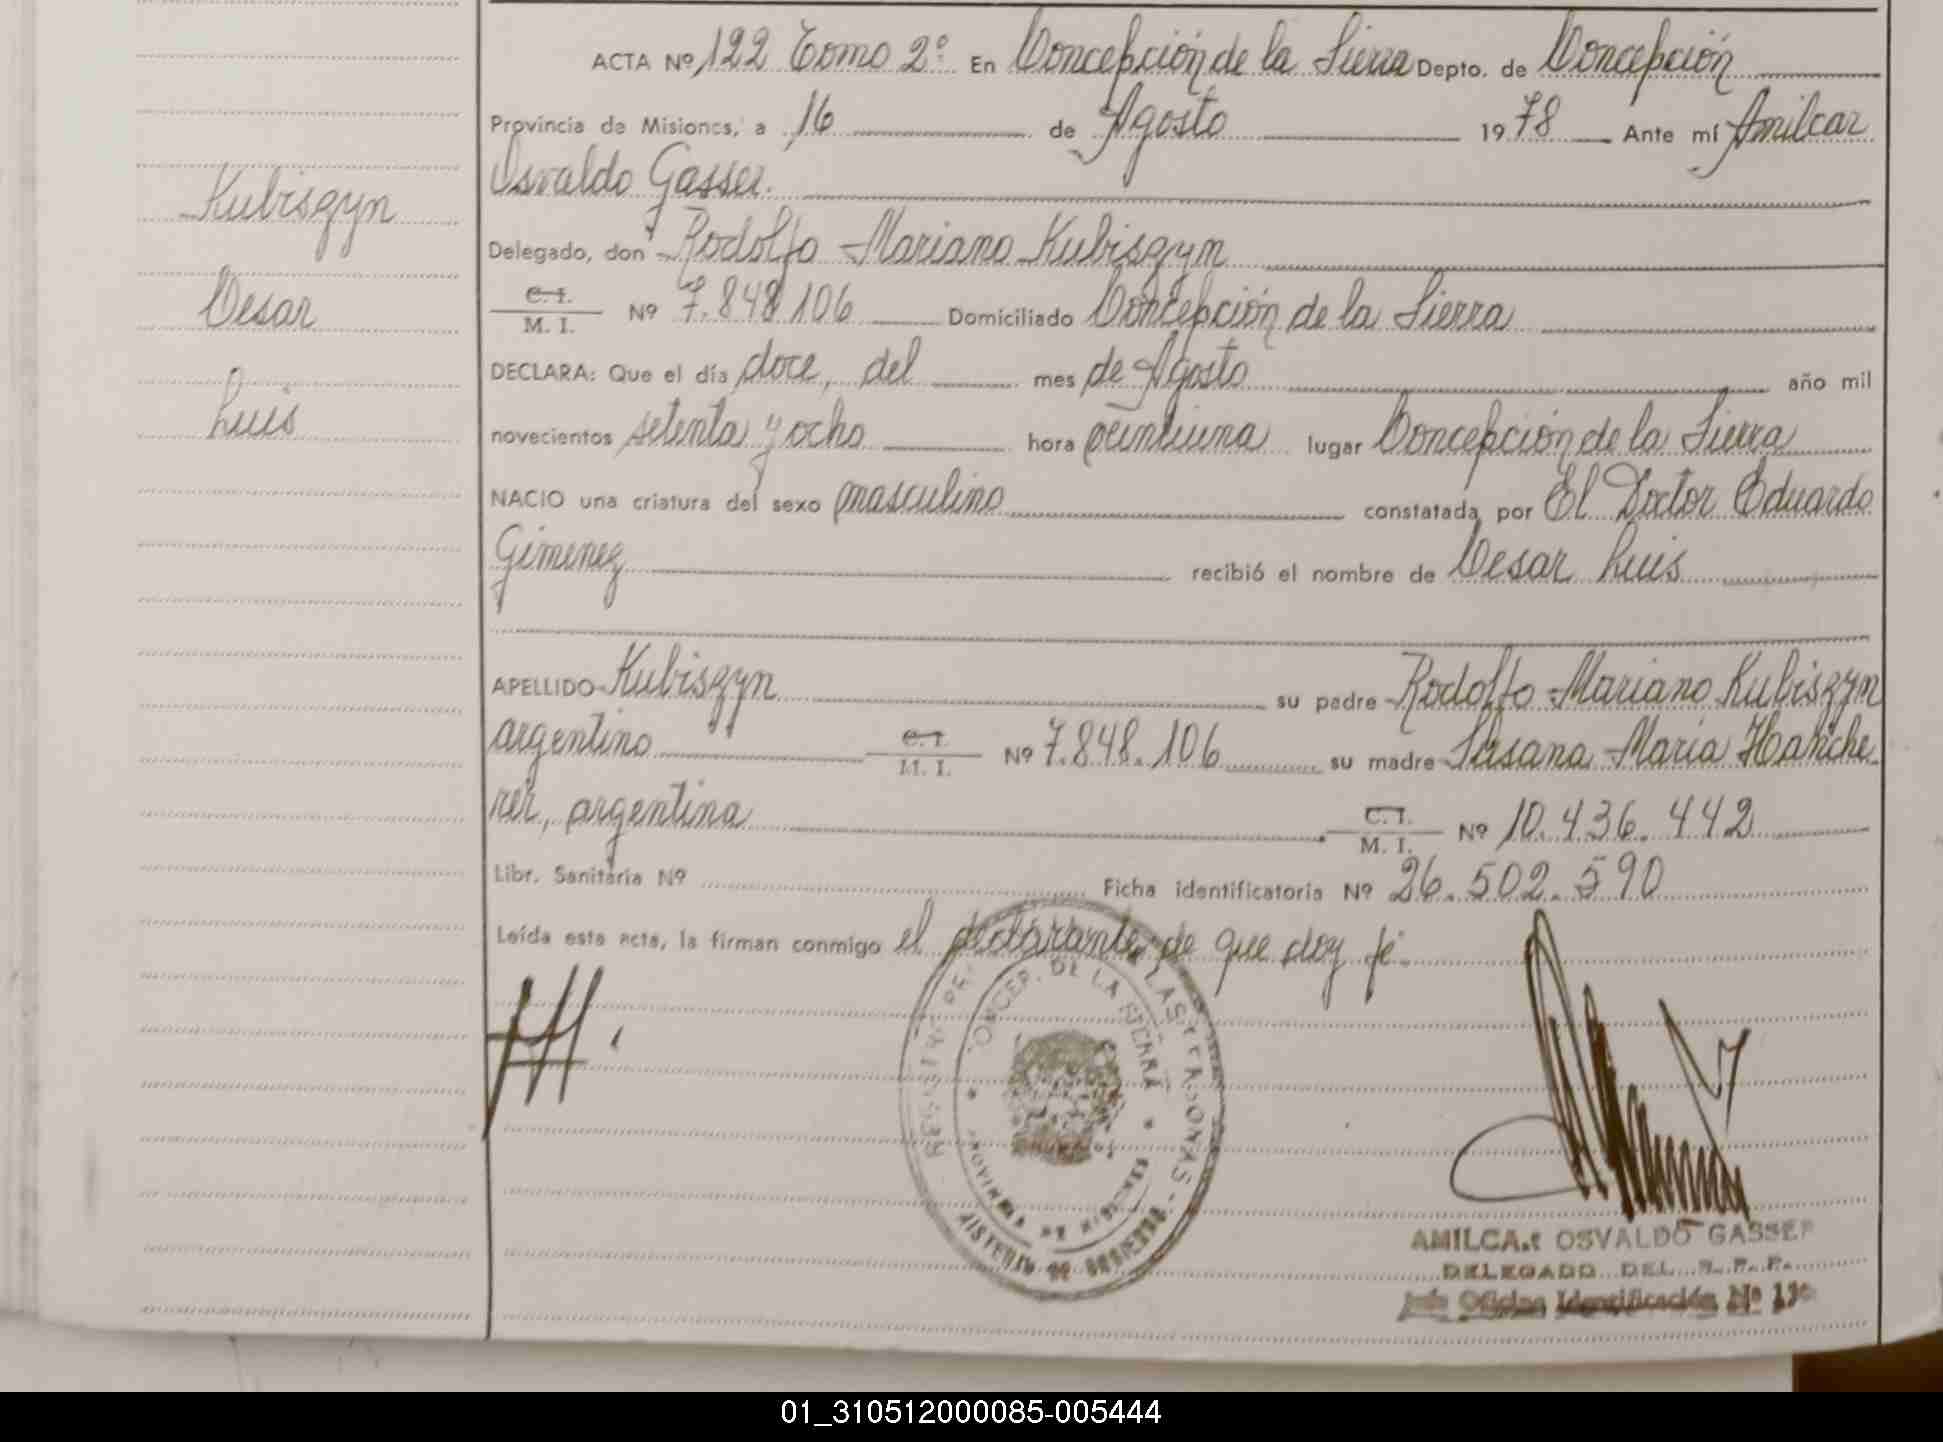 ACTA Nº 122 Tomo 2º En Concepción de la Sierra Depto. de Concepción
Provincia de Misiones, a 16 de Agosto 1978 Ante mí Amilcar
Osvaldo Gasser.
Kubiszyn
Delegado, don Rodolfo Mariano Kubiszyn
Cesar
C. I.
M. I. Nº 7.848.106 Domiciliado Concepción de la Sierra
DECLARA: Que el día doce, del mes de Agosto año mil
Luis
novecientos setenta y ocho hora veintiuna lugar Concepción de la Sierra
NACIO una criatura del sexo masculino constatada por El Doctor Eduardo
Gimenez recibió el nombre de Cesar Luis
APELLIDO Kubiszyn su padre Rodolfo Mariano Kubiszyn
argentino C. I. M. I. Nº 7.848.106 su madre Susana Maria Hanche
rer, argentina C. I. M. I. Nº 10.436.442
Libr. Sanitaria Nº Ficha identificatoria Nº 26.502.590
Leída esta acta, la firman conmigo el declarante, de que doy fé.
CONCEP. DE LA SIERRA
PROVINCIA DE MISIONES
DE LAS PERSONAS
MINISTERIO DE GOBIERNO
AMILCAR OSVALDO GASSER
DELEGADO DEL R. P. P.
Jefe Oficina Identificación Nº
01_310512000085-005444